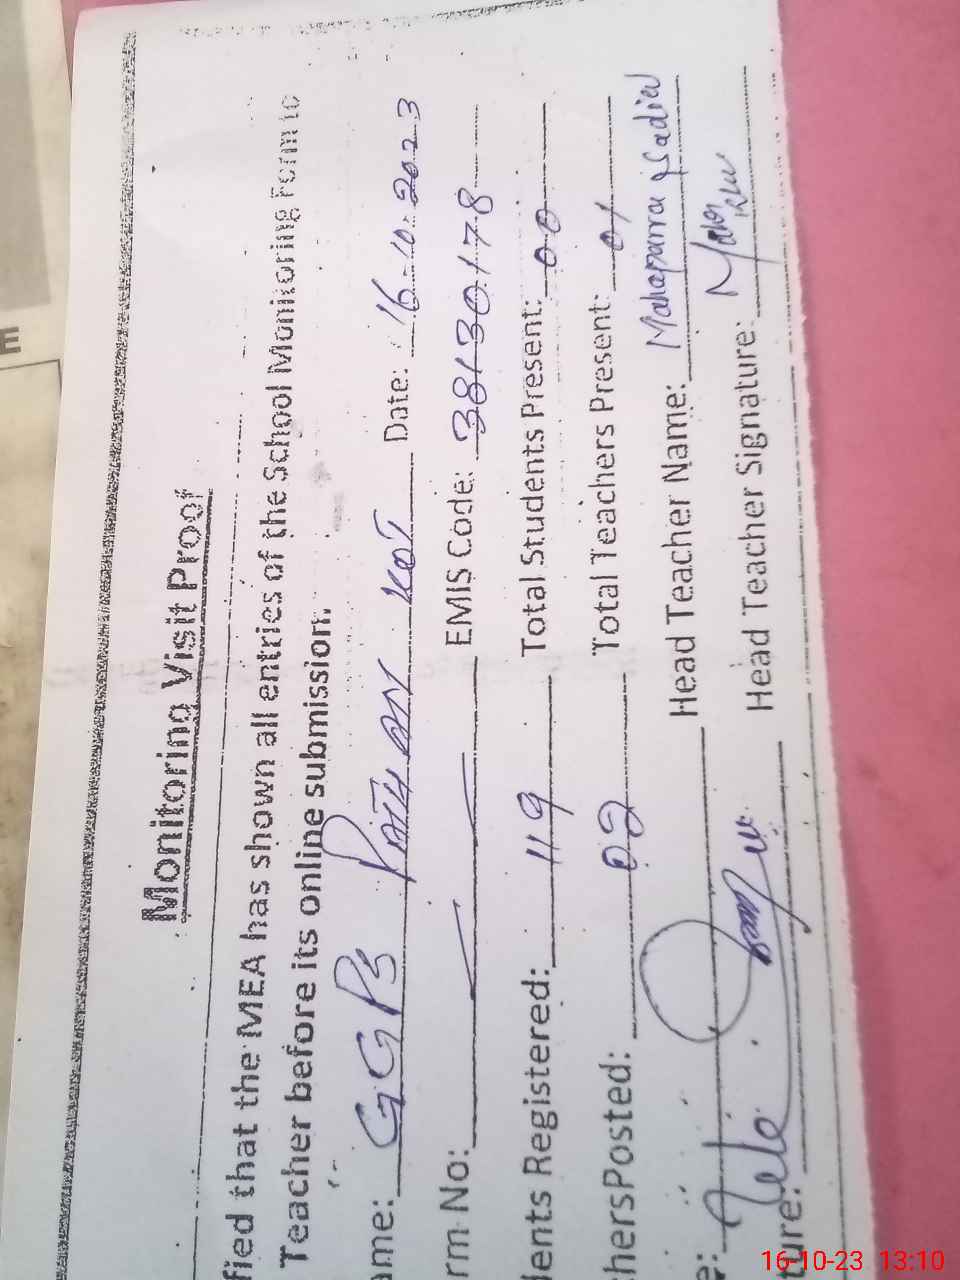 E
Monitoring Visit Proof
fied that the MEA has shown all entries of the School Monitoring Form to
Teacher before its online submission.
ame: GGPS Date: 16-10-2023
rm No: EMIS Code: 38130178
dents Registered: 119 Total Students Present: 00
chersPosted: 02 Total Teachers Present: 01
e: Head Teacher Name: Mahapara Sadiq
ture: Head Teacher Signature:
16-10-23 13:10